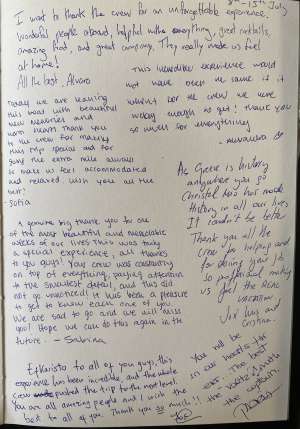 8th - 15th July
I want to thank the crew for an unforgettable experience.
Wonderful people aboard, helpful with everything, great cocktails,
amazing food, and great company. They really made us feel
at home!
All the best, Alvaro
This incredible experience would
not have been the same if it
wasn't for the crew we were
lucky enough to get! Thank you
so much for everything
Today we are leaving
this boat with beautiful
new memories and
warm hearts. Thank you
to the crew for making
this trip special and for
going the extra mile always
to make us feel accommodated
and relaxed. Wish you all the
best!
- Sofia
As Greece is history
anywhere you go
Christel has made
History in all our lives.
It can't be better
Thank you all the
crew for helping and
for doing your job
so proffesional making
us feel the REAL
vacation.
and
Cristian.
A genuine big thank you for one
of the most beautiful and memorable
weeks of our lives. This was truly
a special experience, all thanks
to you guys. Your crew was constantly
on top of everything, paying attention
to the smallest detail, and this did
not go unnoticed. It was been a pleasure
to get to know each one of you.
We are sad to go and we will miss
you! Hope we can do this again in the
future. - Sabrina
Efkaristo to all of you guys, this
experience has been incredible, and the whole
crew pushed the trip to the next level.
You are all amazing people and I wish the
best to all of you. Thank you so much!!
You will be
in our hearts for
ever. The best
captain.